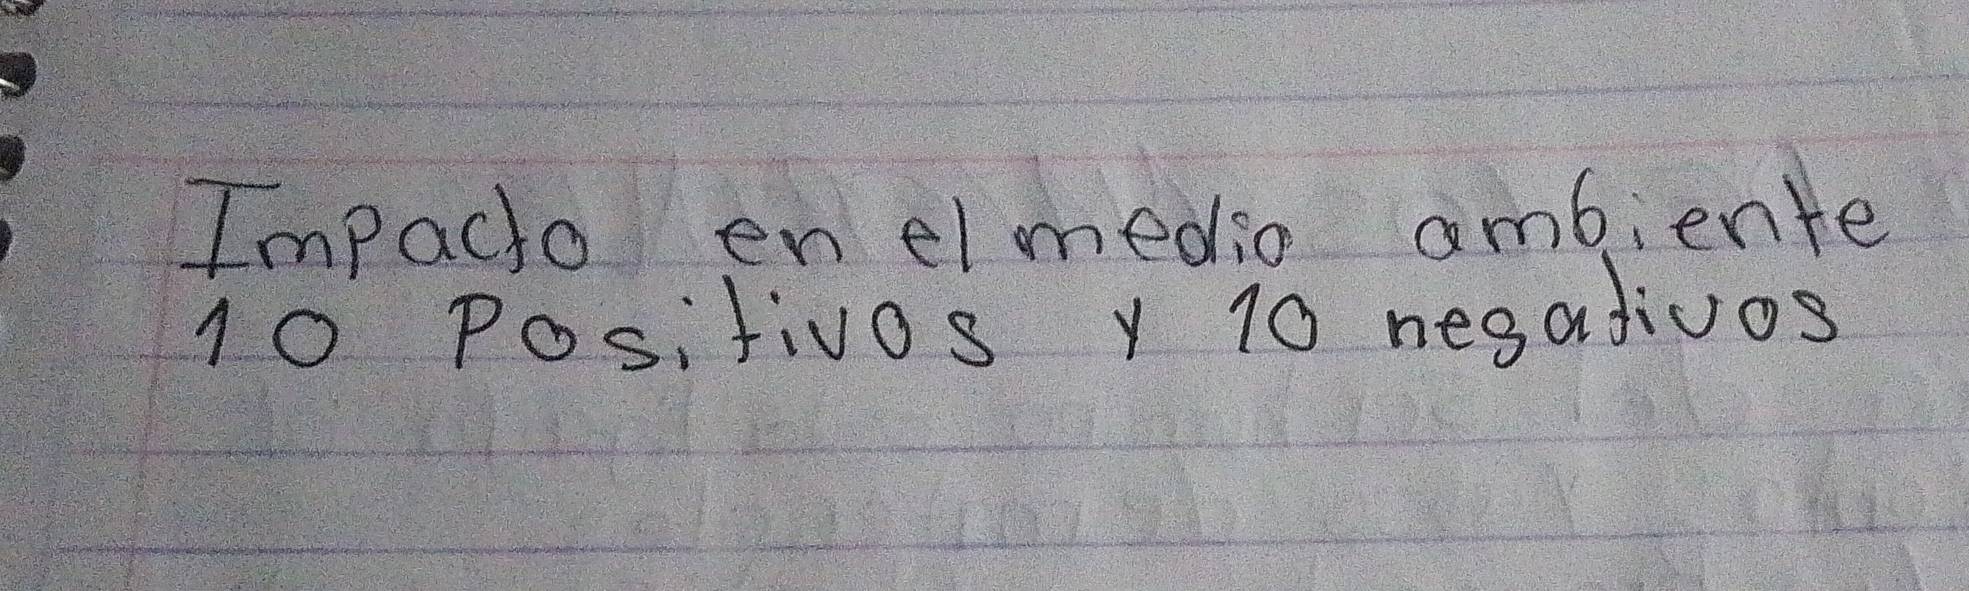 Impacto en el medio ambiente
10 Positivos y 10 negativos